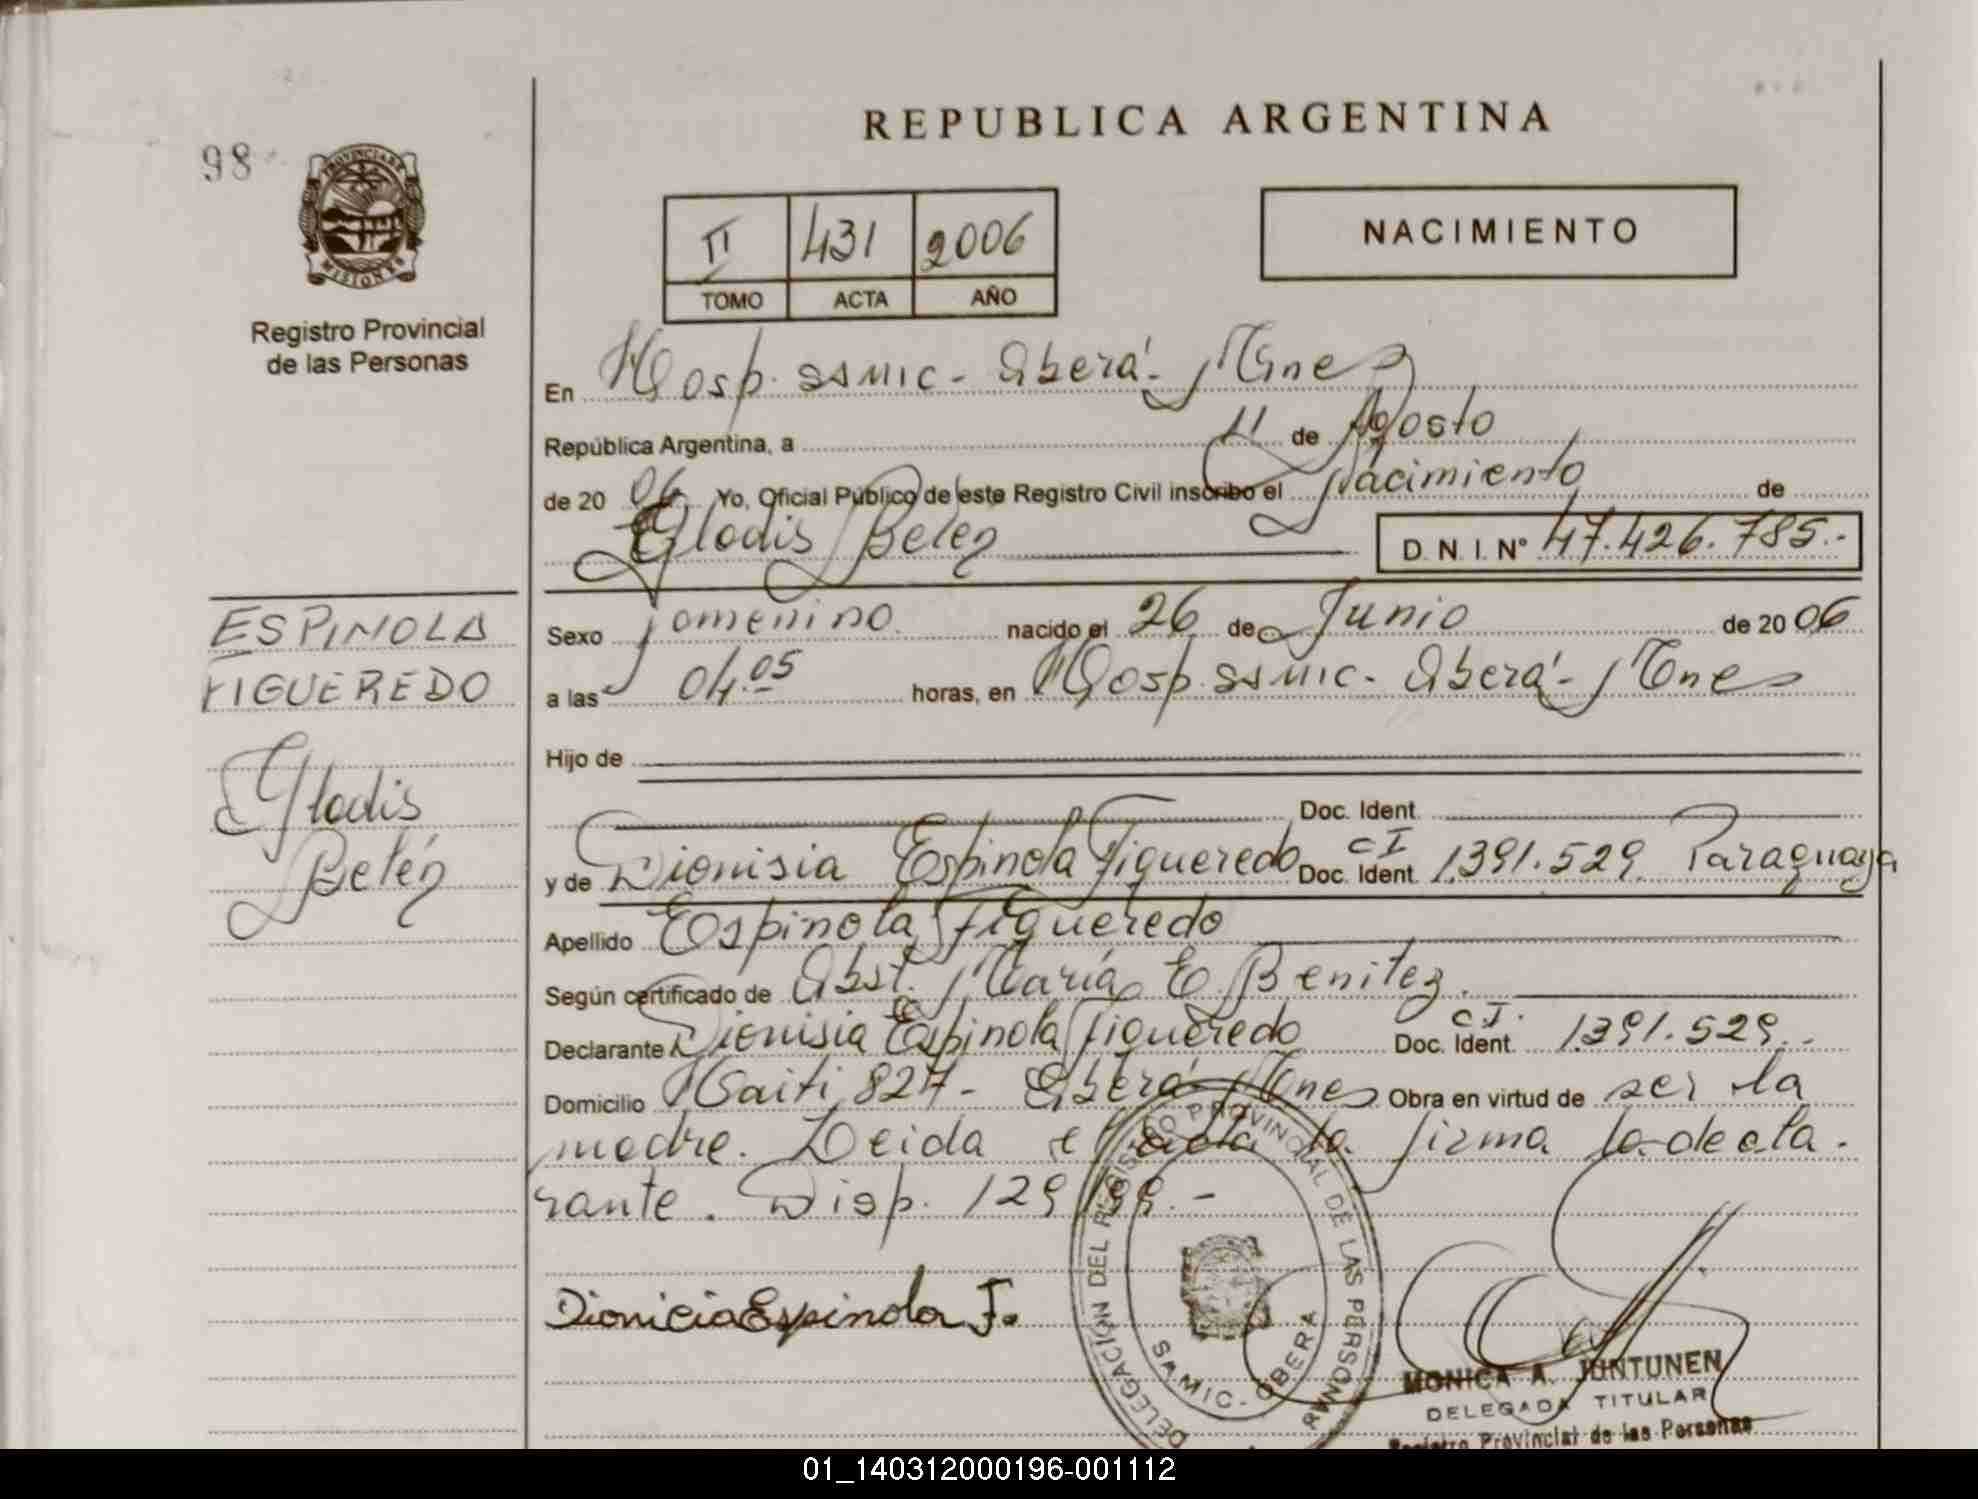 REPUBLICA ARGENTINA
98
PROVINCIA DE
MISIONES
Registro Provincial
de las Personas
II 431 2006
TOMO ACTA AÑO
NACIMIENTO
En Hosp. SAMIC - Oberá - Mnes
República Argentina, a 11 de Agosto
de 20 06 Yo, Oficial Público de este Registro Civil inscribo el Nacimiento de
Gladis Belén D. N. I. Nº 47.426.785.-
ESPINOLA
FIGUEREDO
Gladis
Belén
Sexo Femenino nacido el 26 de Junio de 20 06
a las 04.05 horas, en Hosp. SAMIC - Oberá - Mnes
Hijo de
Doc. Ident.
y de Dionisia Espinola Figueredo Doc. Ident. CI 1.391.529 Paraguaya
Apellido Espinola Figueredo
Según certificado de Obst. María E. Benitez.
Declarante Dionisia Espinola Figueredo Doc. Ident. C.I. 1.391.529.-
Domicilio Haiti 827 - Oberá - Mnes Obra en virtud de ser la
madre. Leida el acta la firma la decla-
rante. Disp. 129/99.-
Dionicia Espinola F.
DELEGACIÓN DEL REGISTRO PROVINCIAL DE LAS PERSONAS
SAMIC - OBERA
MONICA A. JUNTUNEN
DELEGADA TITULAR
Registro Provincial de las Personas
01_140312000196-001112